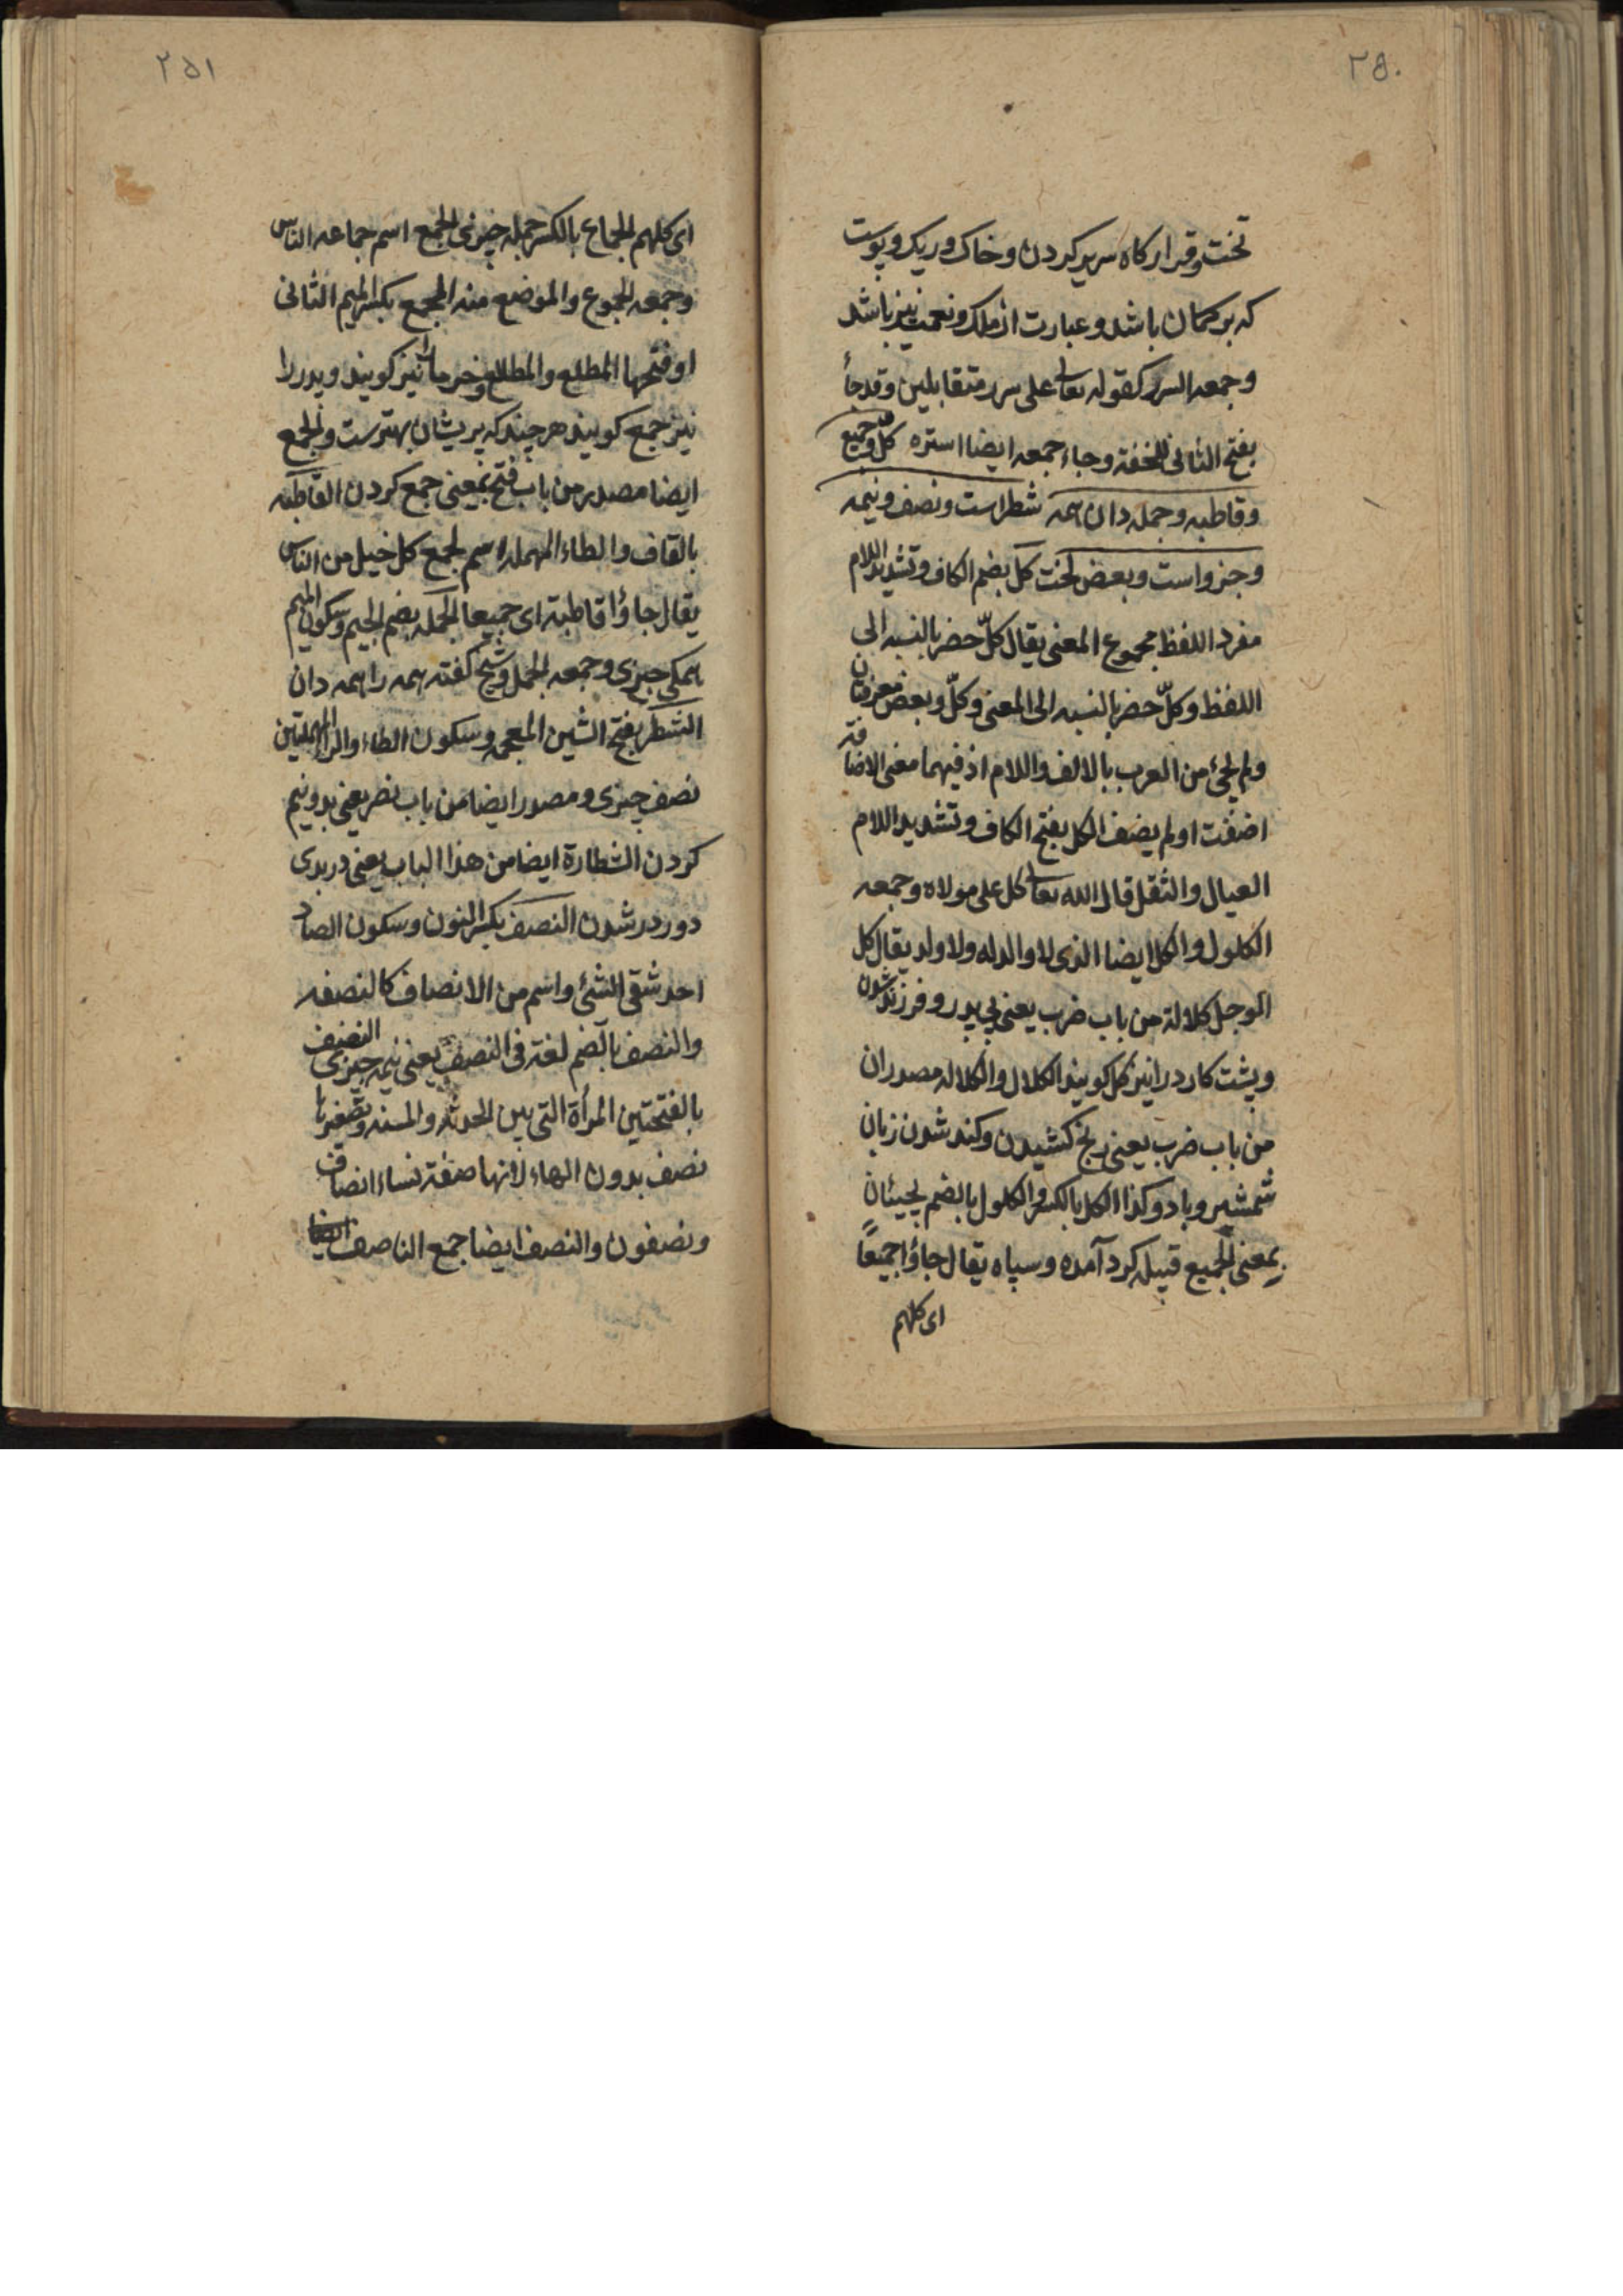 ۲۵۰
تخت وقرار کاه سریر کردن وخاک وریک وپوست
که بر کمان باشد وعبارت از ملک ونعمت نیز باشد
وجمعه السرر کقوله تعالی علی سرر متقابلین وقد جاء
بفتح الثانی للخفة وجاء جمعه ایضا اسره کل وجمیع
وقاطبه وجمله دان همه شطر است ونصف ونیمه
وجزو است وبعض لخت کل بضم الکاف وتشدید اللام
مفرد اللفظ مجموع المعنی یقال کلّ حضر بالنسبه الی
اللفظ وکلّ حضر بالنسبه الی المعنی وکلّ وبعض معرفتان
ولم یجئ من العرب بالالف واللام اذ فیهما معنی الاضافة
اضفت او لم یضف الکل بفتح الکاف وتشدید اللام
العیال والثقل قال الله تعالی کل علی مولاه وجمعه
الکلول والکل ایضا الذی لا والد له ولا ولد یقال کل
الرجل کلالة من باب ضرب یعنی بی پدر وفرزند شدن
وپشت کارد را نیز کل کویند الکلال والکلاله مصدران
من باب ضرب یعنی رنج کشیدن وکند شدن زبان
شمشیر وباد وکذا الکل بالکسر والکلول بالضم یجیئان
بمعنی الجمیع قبیله کرد آمده وسپاه یقال جاؤا جمیعًا
ای کلهم
۲۵۱
ای کلهم الجماع بالکسر جمله چیزی الجمع اسم جماعه الناس
وجمعه الجموع والموضع منه المجمع بکسر المیم الثانی
او فتحها المطلع والمطلع وخرما را نیز کویند وپدر را
نیز جمع کویند هر چند که پریشان بهترست والجمع
ایضا مصدر من باب فتح بمعنی جمع کردن القاطبه
بالقاف والطاء المهمله اسم لجمع کل خیل من الناس
یقال جاؤا قاطبة ای جمیعا الجمله بضم الجیم وسکون المیم
همکی چیزی وجمعه الجمل وشیخ کفته همه را همه دان
الشطر بفتح الشین المعجمه وسکون الطاء والراء المهملتین
نصف چیزی ومصدر ایضا من باب نصر یعنی بدو نیم
کردن الشطارة ایضا من هذا الباب یعنی در بدی
دور در شدن النصف بکسر النون وسکون الصاد
احد شقی الشئ واسم من الانصاف کالنصفه
والنصف بالضم لغة فی النصف یعنی نیمه چیزی النصف
بالفتحتین المرأة التی بین الحدثه والمسنه وتصغیرها
نصف بدون الهاء لانها صفة نساء انصاف
ونصفون والنصف ایضا جمع الناصف